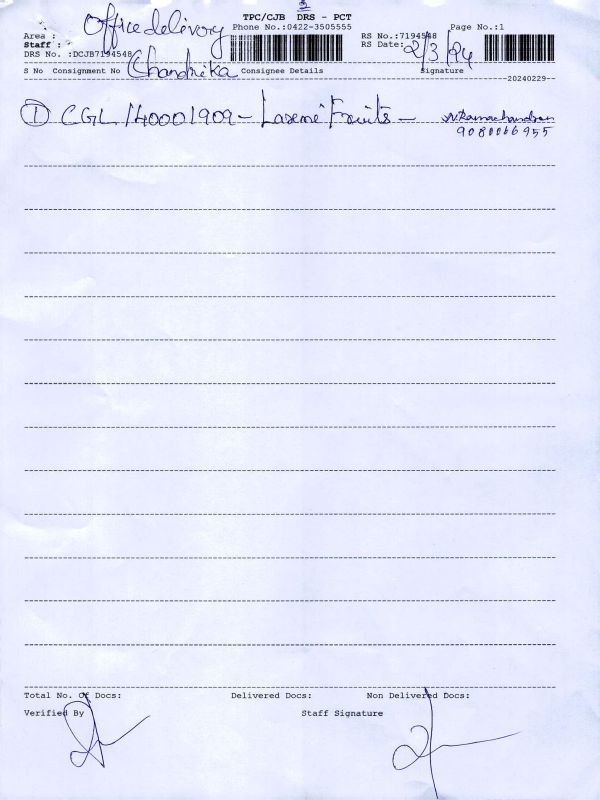 TPC/CJB DRS - PCT
Area : Office delivery Phone No.:0422-3505555 RS No.:7194548 Page No.:1
Staff : RS Date: 2/3/24
DRS No. :DCJB7194548 Chandrika
S No Consignment No Consignee Details Signature
20240229
1 CGL 140001909 - Fruits - N. Ramachandran
9080066955
Total No. Of Docs: Delivered Docs: Non Delivered Docs:
Verified By Staff Signature